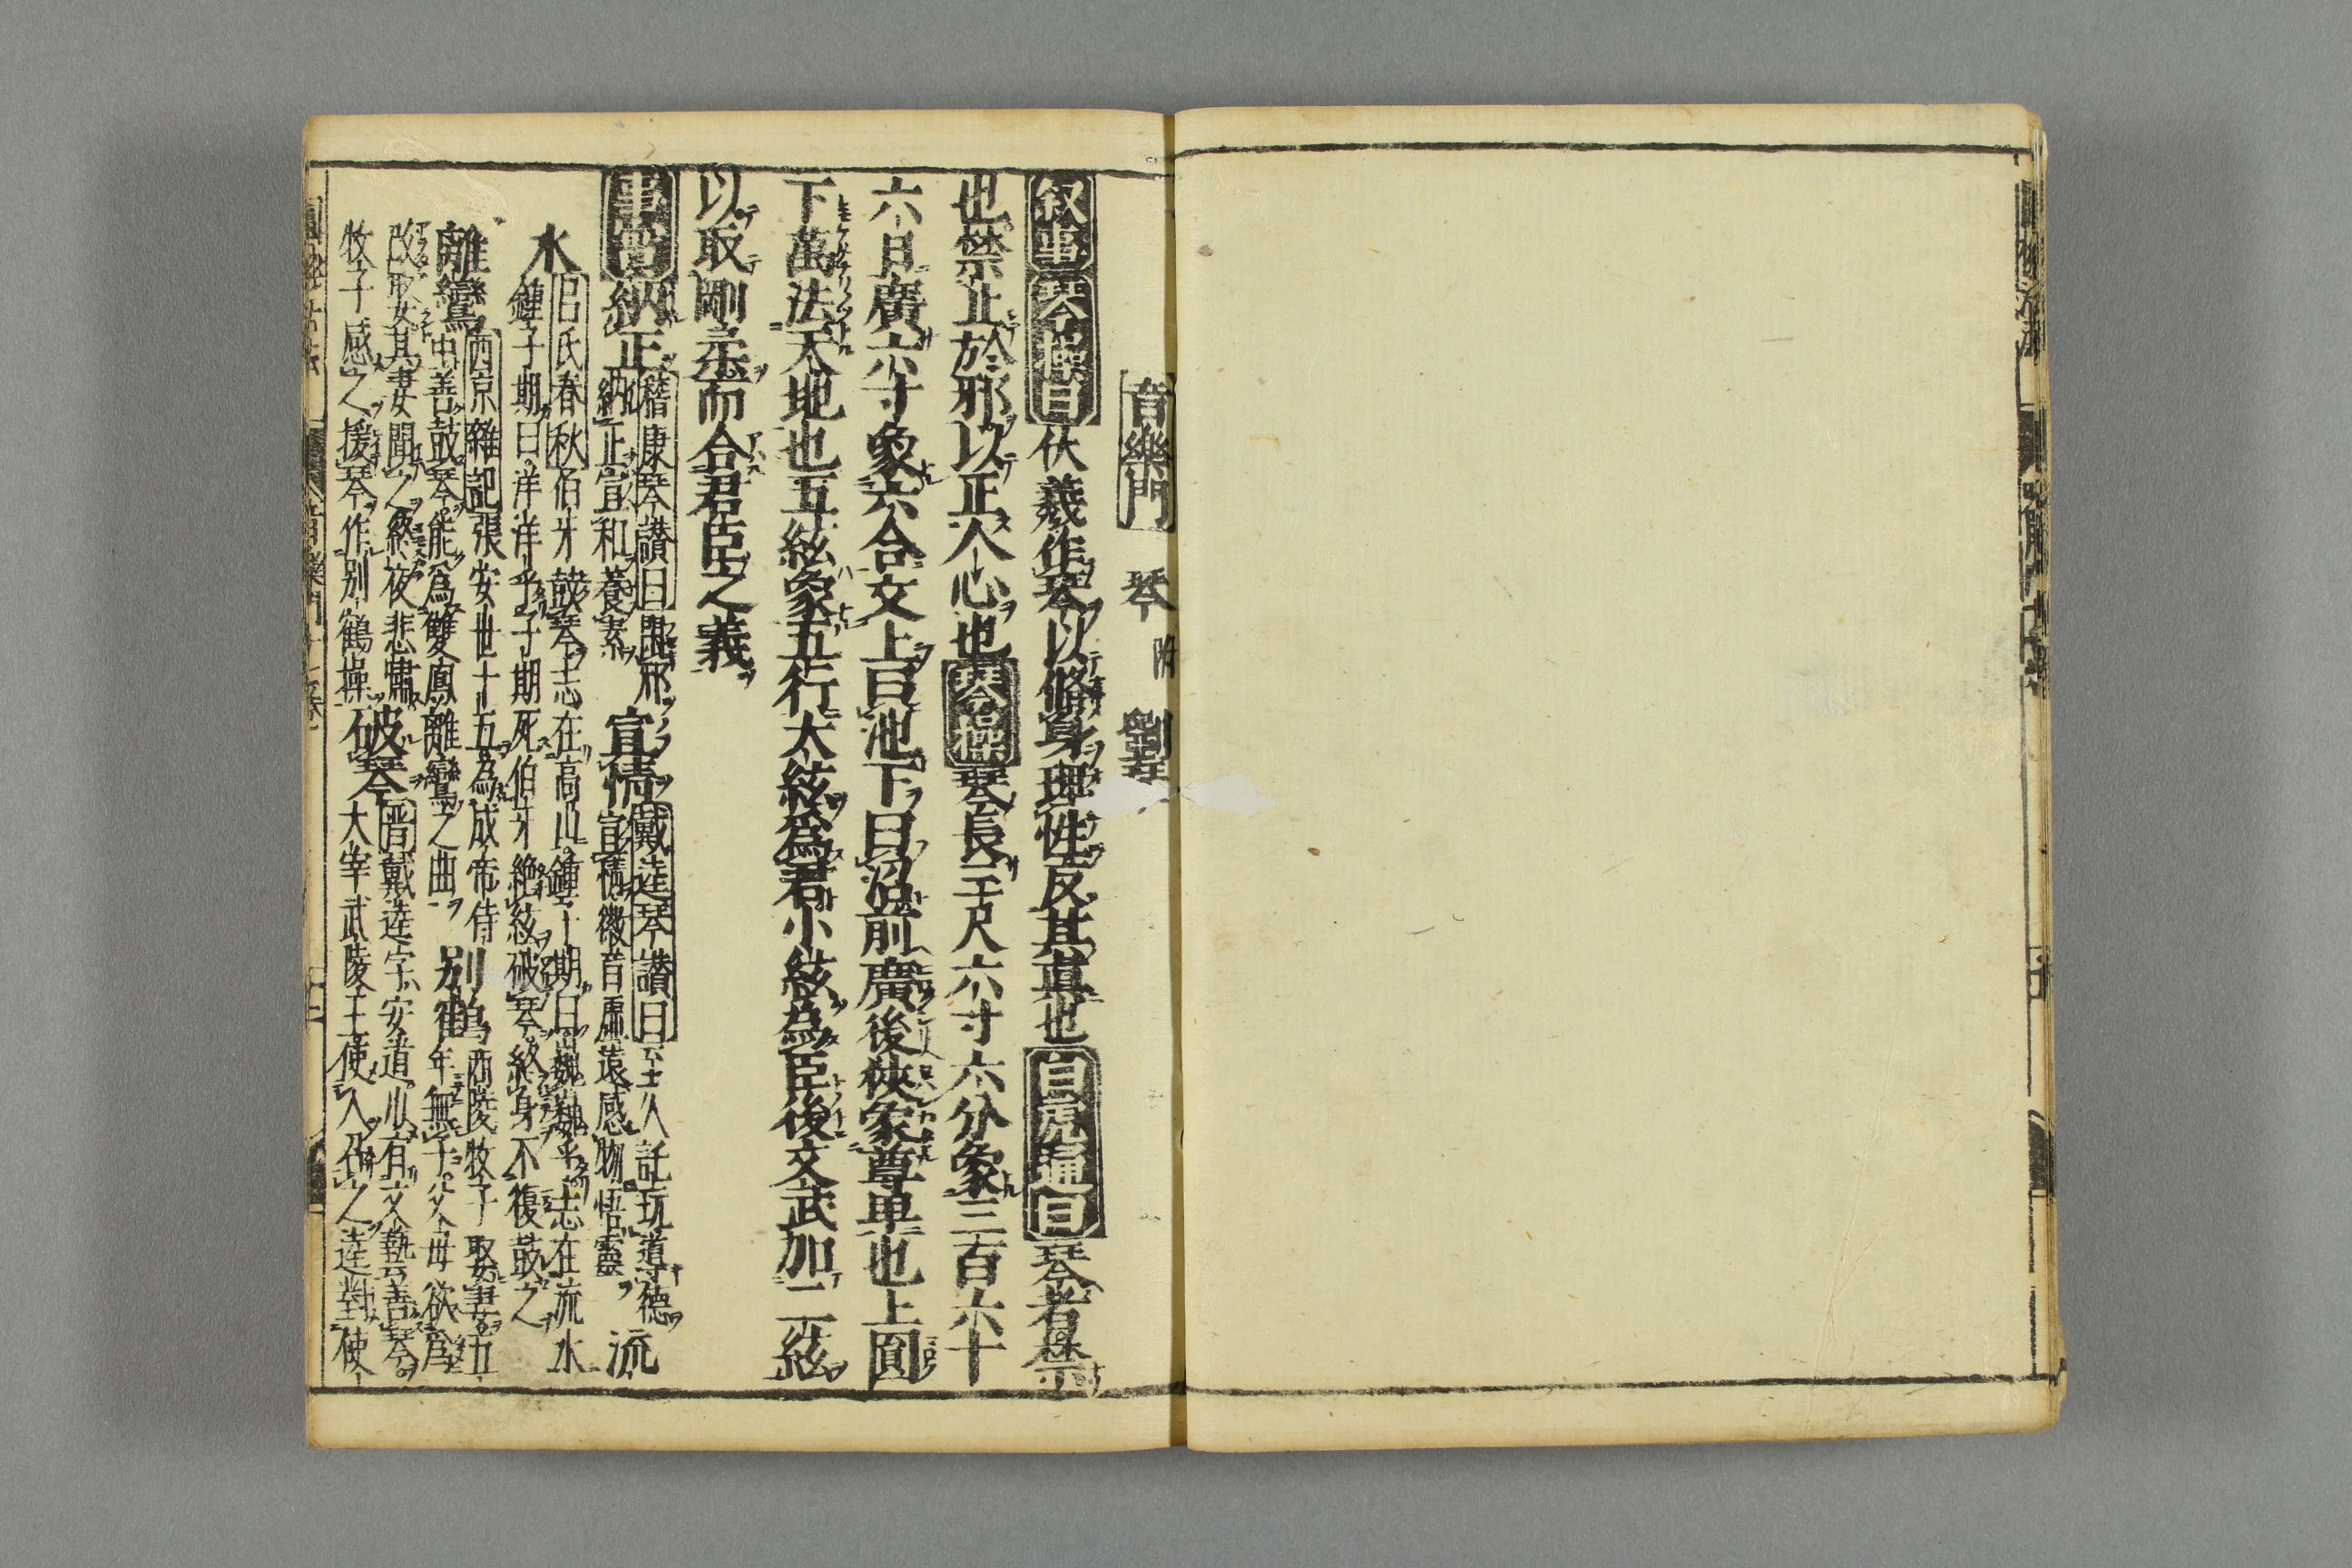 音樂門 琴 附
叙事琴操曰伏羲作琴以脩身理性反其真也白虎通曰琴者禁
也禁止於邪以正人心也琴操琴長三尺六寸六分象三百六十
六日廣六寸象六合文上曰池下曰沼前廣後狹象尊卑也上圓
下萬法天地也五絃象五行大絃為君小絃為臣後文武加二絃
以取剛柔而合君臣之義
事對納正
嵆康琴讃曰閑邪
納正宣和養素
宣情
戴逵琴讃曰至人託玩導德
宣情微音虛遠感物悟靈
流
水
呂氏春秋伯牙鼓琴志在高山鍾子期曰巍巍乎志在流水
鍾子期曰洋洋乎子期死伯牙絶絃破琴終身不復鼓之
離鸞
西京雜記張安世十五為成帝侍
中善鼓琴能為雙鳳離鸞之曲
別鶴
西陵牧子娶妻五
年無子父母欲為
改娶其妻聞之終夜悲嘯
牧子感之援琴作別鶴操
破琴
晋戴逵字安道少有文藝善琴
大宰武陵王使人召之逵對使